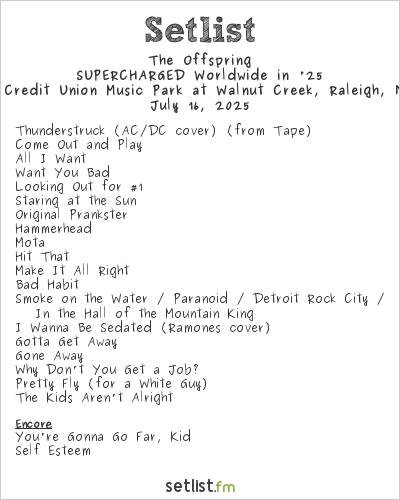 Setlist
The Offspring
SUPERCHARGED Worldwide in '25
Credit Union Music Park at Walnut Creek, Raleigh,
July 16, 2025
Thunderstruck (AC/DC cover) (from Tape)
Come Out and Play
All I Want
Want You Bad
Looking Out for #1
Staring at the Sun
Original Prankster
Hammerhead
Mota
Hit That
Make It All Right
Bad Habit
Smoke on the Water / Paranoid / Detroit Rock City /
In the Hall of the Mountain King
I Wanna Be Sedated (Ramones cover)
Gotta Get Away
Gone Away
Why Don't You Get a Job?
Pretty Fly (for a White Guy)
The Kids Aren't Alright
Encore
You're Gonna Go Far, Kid
Self Esteem
setlist.fm